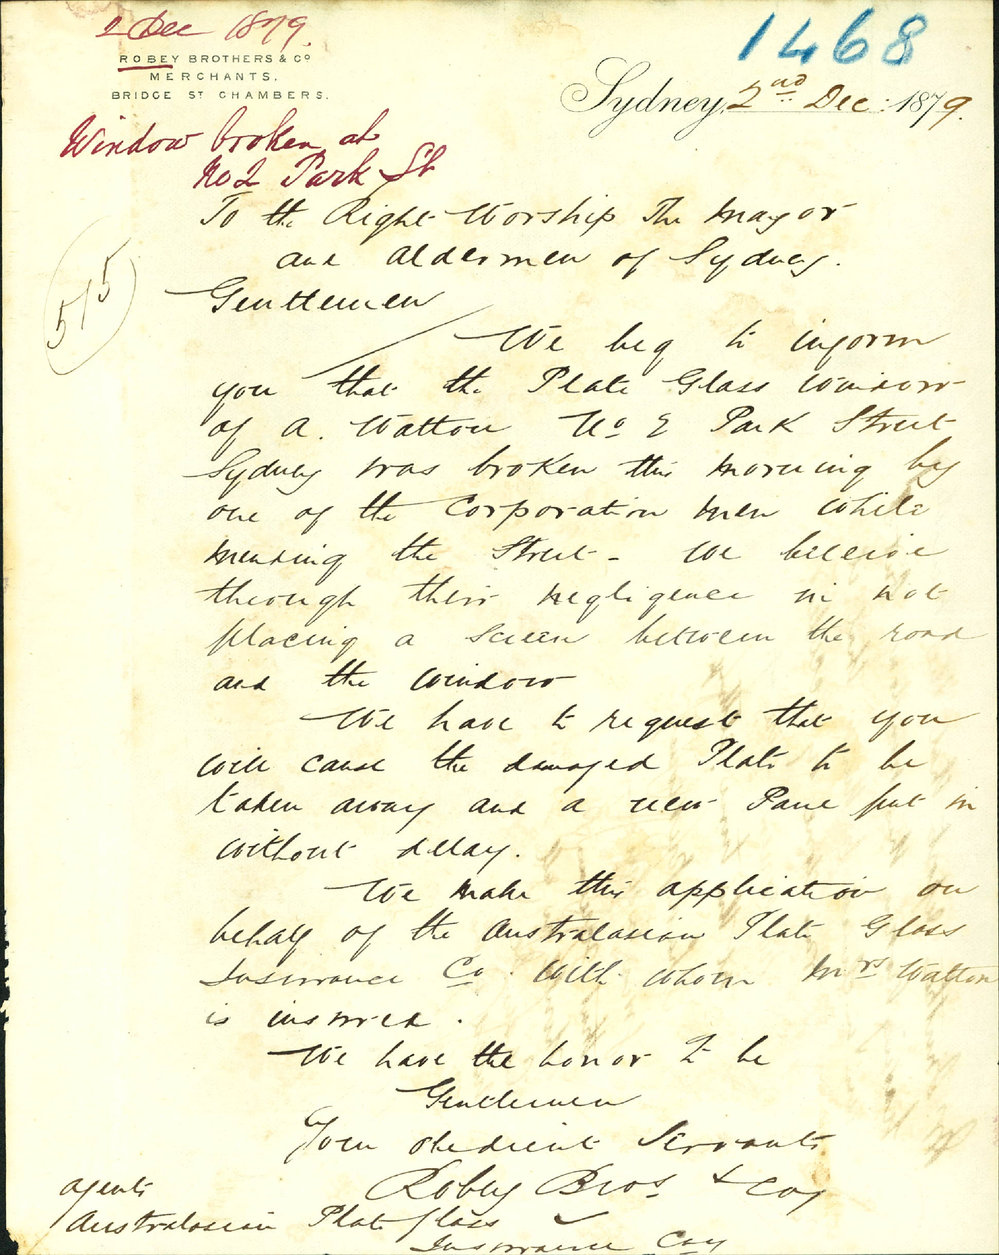 2 Dec 1879.
1468
ROBEY BROTHERS & Co
MERCHANTS.
BRIDGE ST CHAMBERS.
Sydney, 2nd Dec: 1879.
Window broken at
No 2 Park St
515
To the Right Worship The Mayor
and Aldermen of Sydney.
Gentlemen
We beg to inform
you that the Plate Glass Window
of A. Watton No 2 Park Street
Sydney was broken this morning by
one of the Corporation men while
mending the Street - We believe
through their negligence in not
placing a screen between the road
and the window
We have to request that you
will cause the damaged Plate to be
taken away and a new Pane put in
without delay.
We make this application on
behalf of the Australasian Plate Glass
Insurance Co. with whom Mrs Watton
is insured.
We have the honor to be
Gentlemen
Your obedient Servants
Robey Bros & Coy
agents
Australasian Plate glass
Insurance Coy